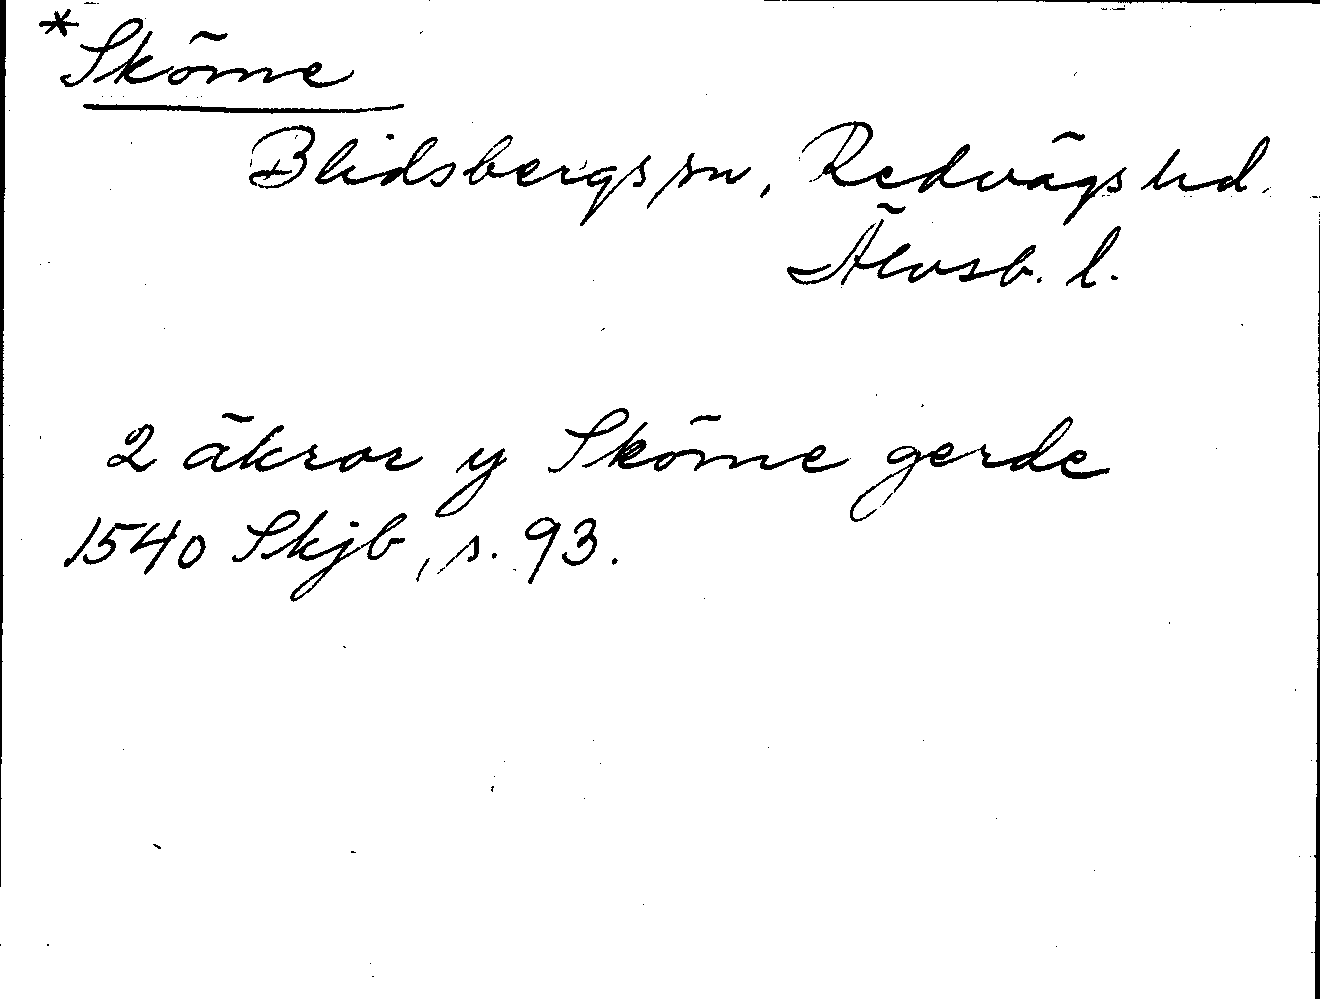 *Sköme
Blidsbergs sn, Redvägs hd.
Älvsb. l.
2 åkrar y Sköme gerde
1540 Skjb, s. 93.